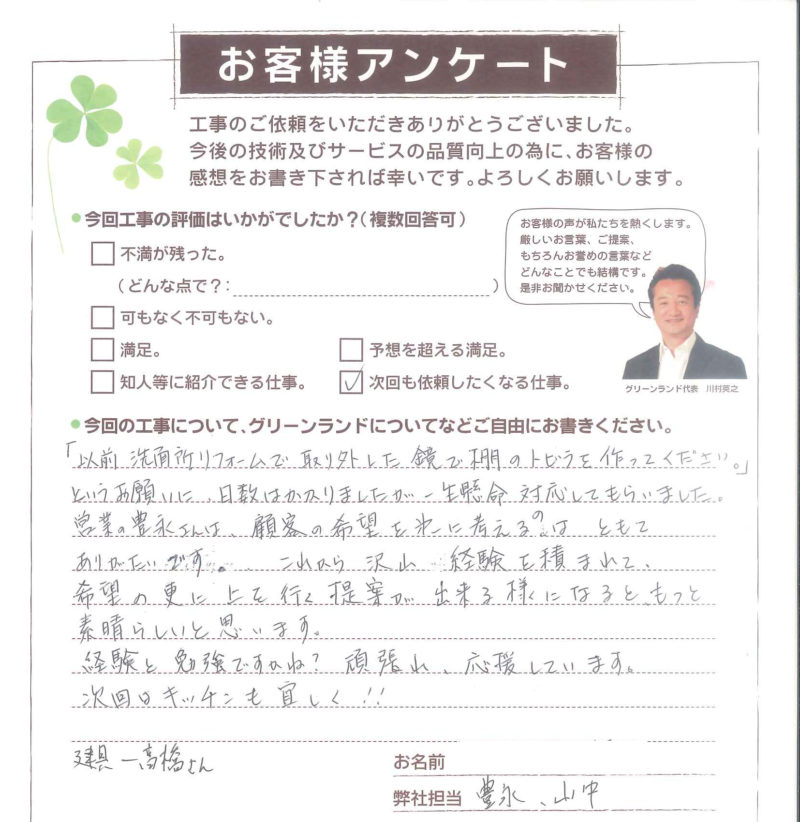 お客様アンケート
工事のご依頼をいただきありがとうございました。
今後の技術及びサービスの品質向上の為に、お客様の
感想をお書き下されば幸いです。よろしくお願いします。
今回工事の評価はいかがでしたか？（複数回答可）
不満が残った。
（どんな点で？：　）
可もなく不可もない。
満足。
予想を超える満足。
知人等に紹介できる仕事。
次回も依頼したくなる仕事。
お客様の声が私たちを熱くします。
厳しいお言葉、ご提案、
もちろんお誉めの言葉など
どんなことでも結構です。
是非お聞かせください。
グリーンランド代表　川村英之
今回の工事について、グリーンランドについてなどご自由にお書きください。
「以前 洗面所リフォームで 取り外した 鏡で棚のトビラを作ってください。」
というお願いに、日数はかかりましたが一生懸命 対応してもらいました。
営業の豊永さんは、顧客の希望を第一に考えるのは とても
ありがたいです。 これから 沢山 経験を積まれて、
希望の更に上を行く提案が 出来る様になると、もっと
素晴らしいと思います。
経験と勉強ですかね？ 頑張れ、応援しています。
次回はキッチンも宜しく!!
建具－高橋さん
お名前
弊社担当 豊永、山中